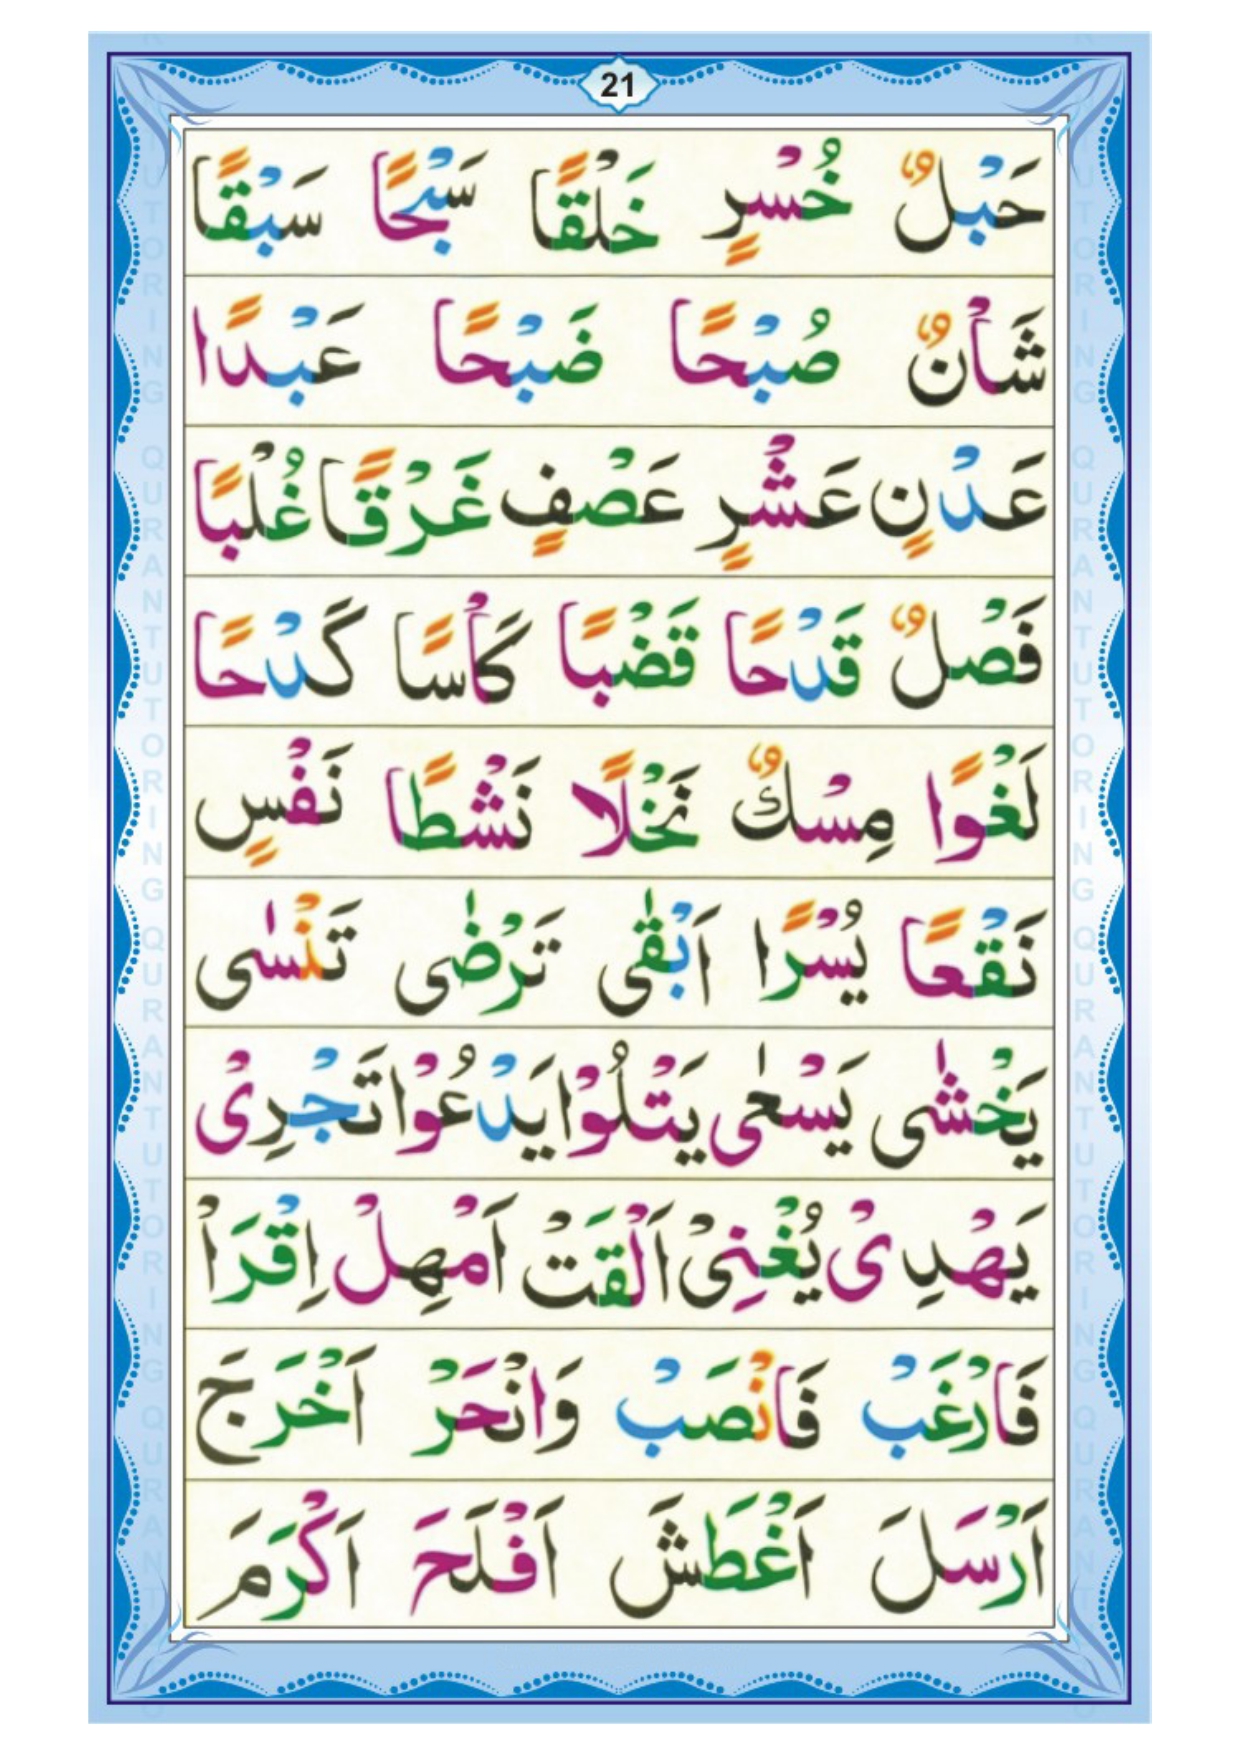 21
حَبْلٌ خُسْرٍ خَلْقًا سَبْحًا سَبْقًا
شَأْنٌ صُبْحًا ضَبْحًا عَبْدًا
عَدْنٍ عَشْرٍ عَصْفٍ غَرْقًا غُلْبًا
فَصْلٌ قَدْحًا قَضْبًا كَأْسًا كَدْحًا
لَغْوًا مِسْكٌ نَخْلًا نَشْطًا نَفْسٍ
نَقْعًا يُسْرًا اَبْقٰى تَرْضٰى تَنْسٰى
يَخْشٰى يَسْعٰى يَتْلُوْا يَدْعُوْا تَجْرِىْ
يَهْدِىْ يُغْنِىْ اَلْقَتْ اَمْهِلْ اِقْرَاْ
فَارْغَبْ فَانْصَبْ وَانْحَرْ اَخْرَجَ
اَرْسَلَ اَغْطَشَ اَفْلَحَ اَكْرَمَ
QURAN TUTORING QURAN TUTORING QURANT
QURAN TUTORING QURAN TUTORING QURANT